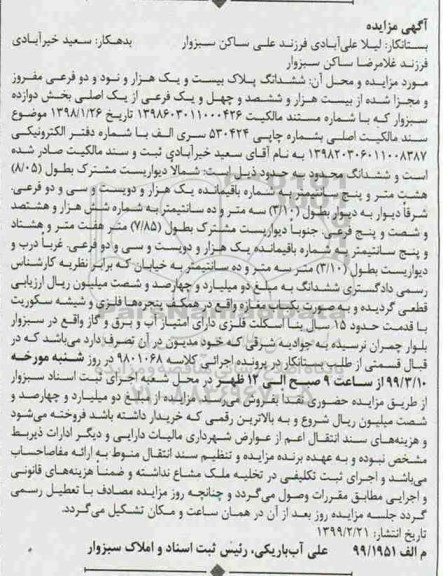 آگهی مزایده
بستانکار: لیلا علی‌آبادی فرزند علی ساکن سبزوار بدهکار: سعید خیرآبادی
فرزند غلامرضا ساکن سبزوار
مورد مزایده و محل آن: ششدانگ پلاک بیست و یک هزار و نود و دو فرعی مفروز
و مجزا شده از بیست هزار و ششصد و چهل و یک فرعی از یک اصلی بخش دوازده
سبزوار که با شماره مستند مالکیت ۱۳۹۸۶۰۳۰۱۱۰۰۰۴۲۶ تاریخ ۱۳۹۸/۱/۲۶ موضوع
سند مالکیت اصلی بشماره چاپی ۵۳۰۴۲۴ سری الف با شماره دفتر الکترونیکی
۱۳۹۸۲۰۳۰۶۰۱۱۰۰۸۳۸۷ به نام آقای سعید خیرآبادی ثبت و سند مالکیت صادر شده
است و ششدانگ محدود به حدود ذیل است: شمالا دیواریست مشترک بطول (۸/۰۵)
هشت متر و پنج سانتیمتر به شماره باقیمانده یک هزار و دویست و سی و دو فرعی.
شرقاً دیوار به دیوار بطول (۳/۱۰) سه متر و ده سانتیمتر به شماره شش هزار و هشتصد
و شصت و پنج فرعی. جنوبا دیواریست مشترک بطول (۷/۸۵) متر هفت متر و هشتاد
و پنج سانتیمتر به شماره باقیمانده یک هزار و دویست و سی و دو فرعی. غربا درب و
دیواریست بطول (۳/۱۰) متر سه متر و ده سانتیمتر به خیابان که برابر نظریه کارشناس
رسمی دادگستری ششدانگ به مبلغ دو میلیارد و چهارصد و شصت میلیون ریال ارزیابی
قطعی گردیده و به صورت یکباب مغازه واقع در همکف پنجره‌ها فلزی و شیشه سکوریت
با قدمت حدود ۱۵ سال بنا اسکلت فلزی دارای امتیاز آب و برق و گاز واقع در سبزوار
بلوار چمران نرسیده به جوادیه شرقی که خود مدیون در آن تصرف دارد می‌باشد که در
قبال قسمتی از طلب بستانکار در پرونده اجرائی کلاسه ۹۸۰۱۰۶۸ در روز شنبه مورخه
۹۹/۳/۱۰ از ساعت ۹ صبح الی ۱۲ ظهر در محل شعبه اجرای ثبت اسناد سبزوار
از طریق مزایده حضوری نقدا بفروش می‌رسد. مزایده از مبلغ دو میلیارد و چهارصد و
شصت میلیون ریال شروع و به بالاترین رقمی که خریدار داشته باشد فروخته می‌شود
و هزینه‌های سند انتقال اعم از عوارض شهرداری مالیات دارایی و دیگر ادارات ذیربط
مشخص نبوده و به عهده برنده مزایده و تنظیم سند انتقال منوط به ارائه مفاصاحساب
می‌باشد و اجرای ثبت تکلیفی در تخلیه ملک مشاع نداشته و ضمناً هزینه‌های قانونی
و اجرایی مطابق مقررات وصول می‌گردد و چنانچه روز مزایده مصادف با تعطیل رسمی
گردد جلسه مزایده روز بعد از آن در همان ساعت و مکان تشکیل می‌گردد.
تاریخ انتشار: ۱۳۹۹/۲/۲۱
م الف ۹۹/۱۹۵۱ علی آب‌باریکی، رئیس ثبت اسناد و املاک سبزوار